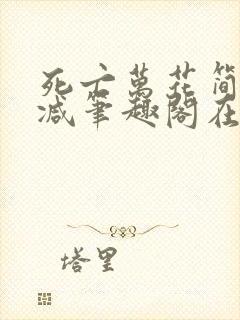 死亡萬花筒
减笔趣阁在
塔里